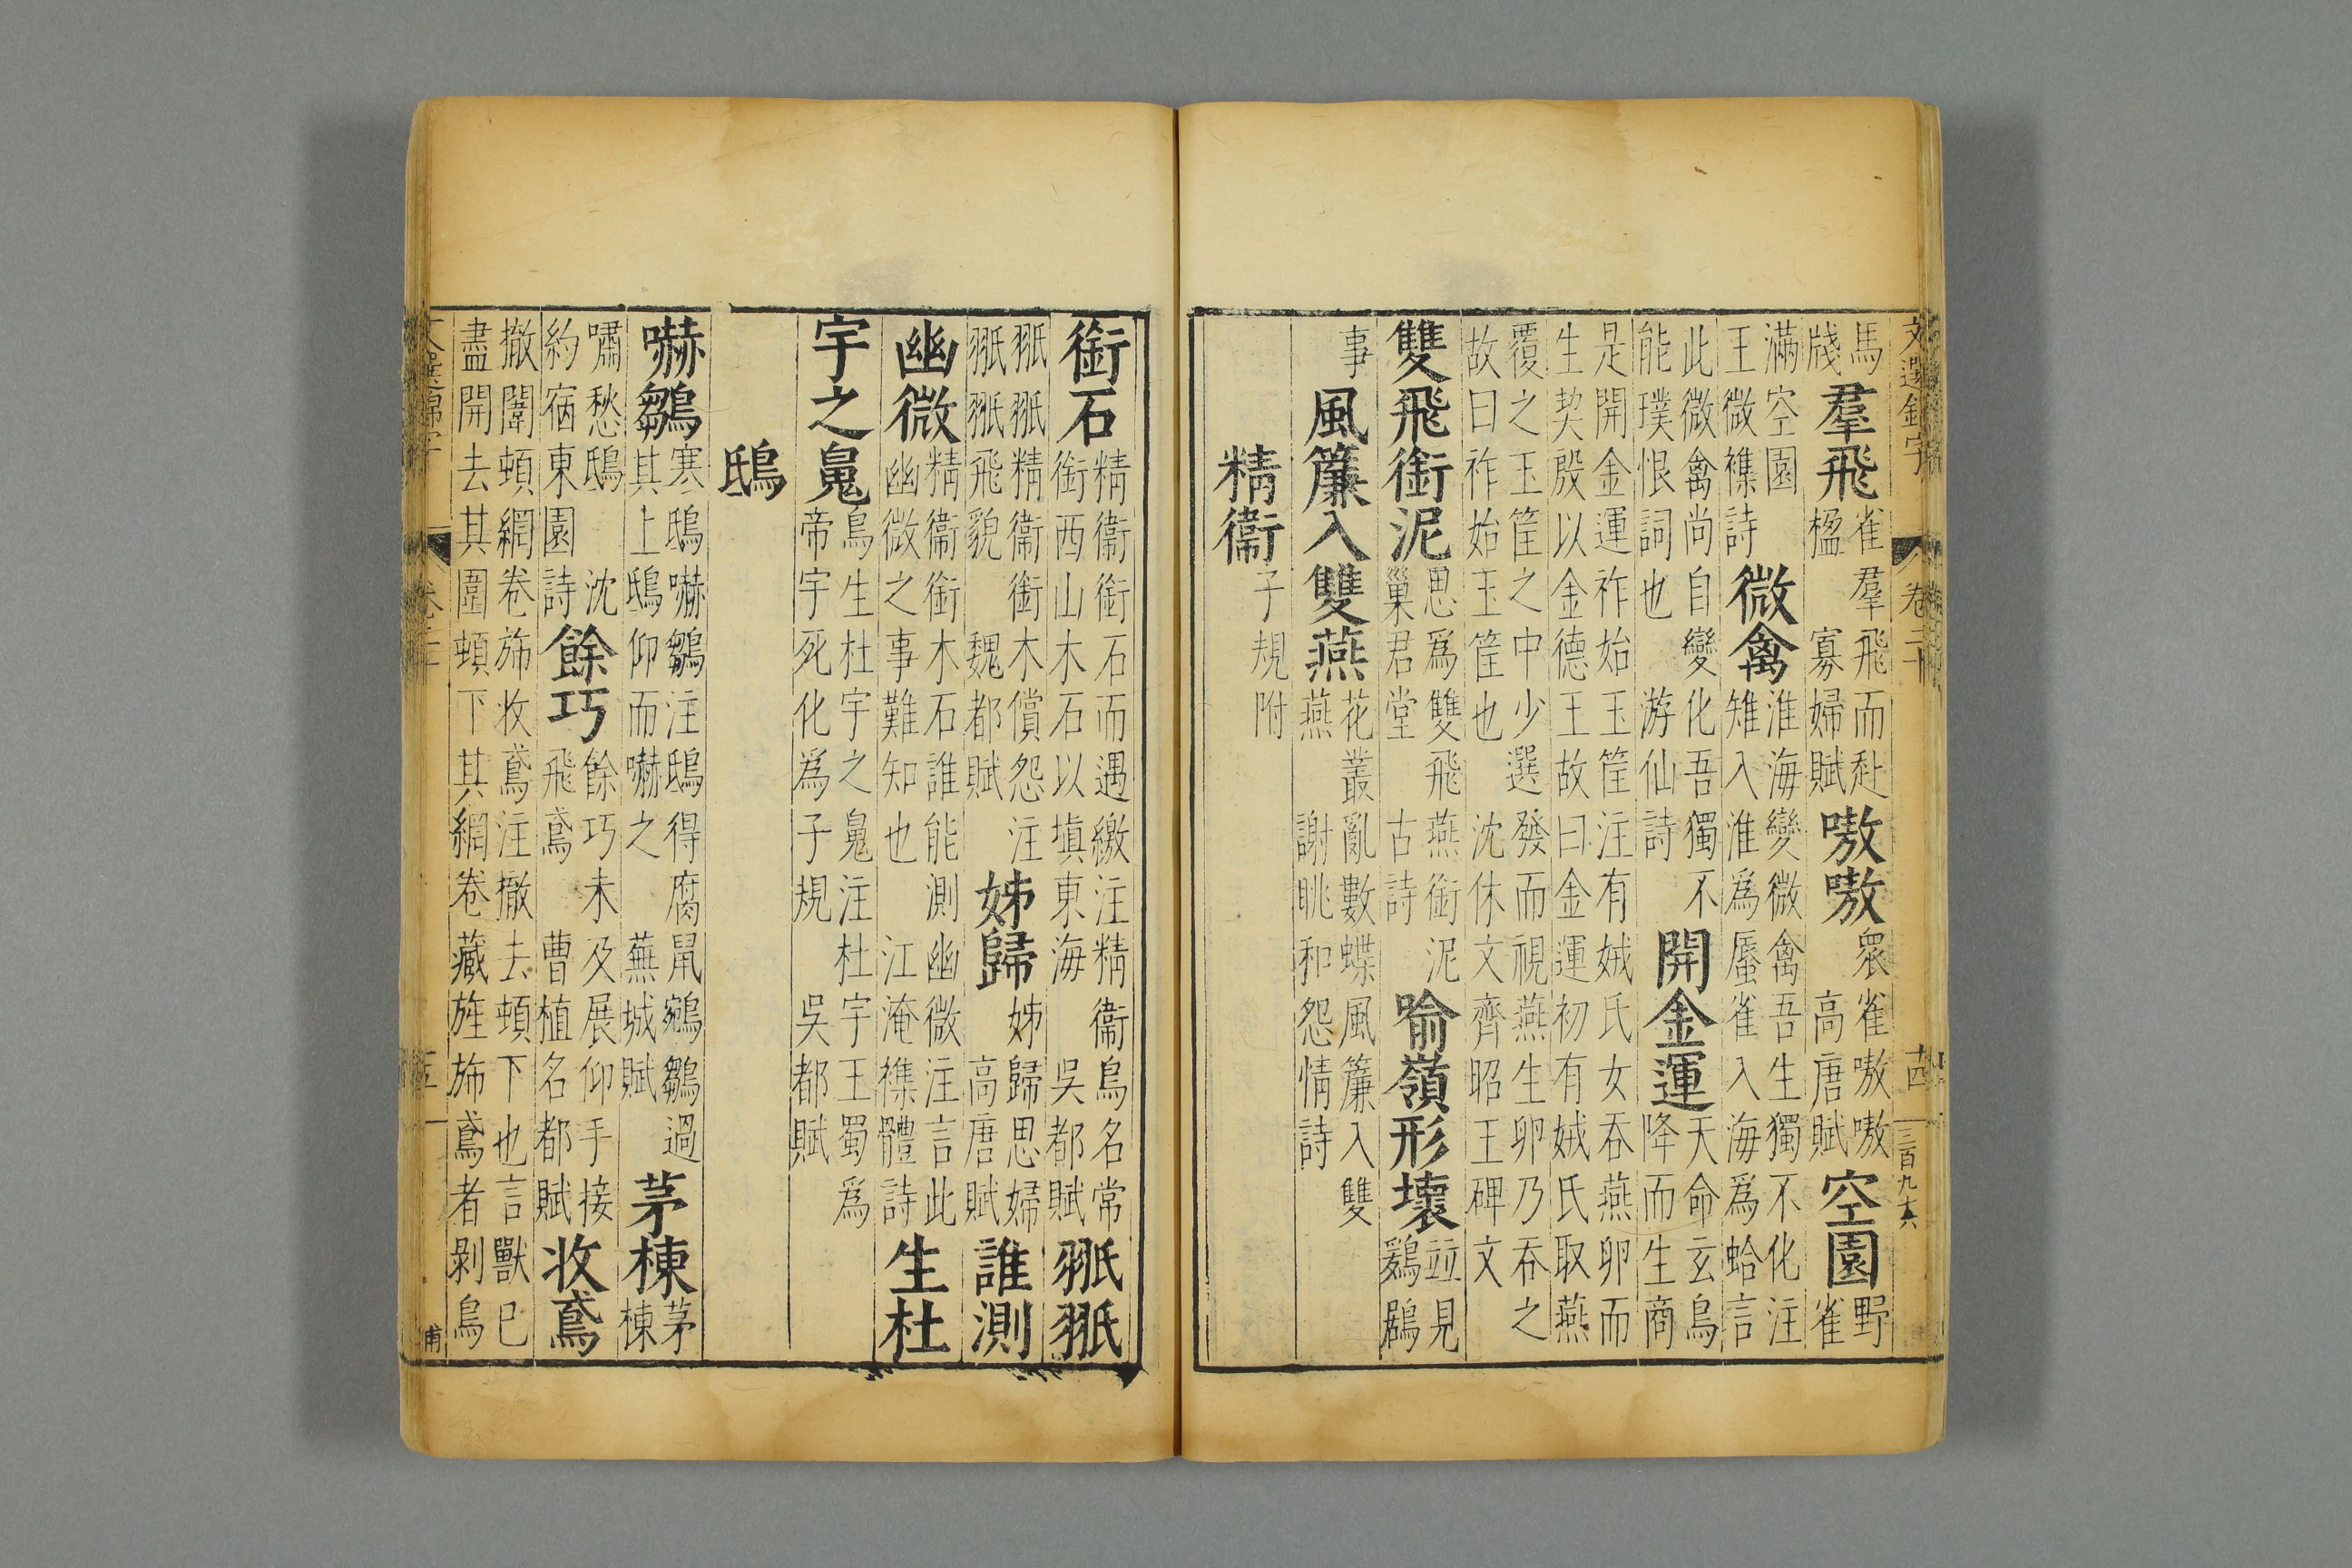 文選錦字 卷二十 十四 三百九十六
馬牋 羣飛 雀羣飛而赴楹 寡婦賦 嗷嗷 衆雀嗷嗷 高唐賦 空園 野雀
滿空園 王微襍詩 微禽 淮海變微禽吾生獨不化注雉入淮爲蜃雀入海爲蛤言
此微禽尚自變化吾獨不能璞恨詞也 游仙詩 開金運 天命玄鳥降而生商
是開金運祚始玉筐注有娀氏女吞燕卵而生契殷以金德王故曰金運初有娀氏取燕
覆之玉筐之中少選發而視燕生卵乃吞之故曰祚始玉筐也 沈休文齊昭王碑文
雙飛銜泥 思爲雙飛燕銜泥巢君堂 古詩 喻嶺形壞 並見
事 風簾入雙燕 花叢亂數蝶風簾入雙燕 謝眺和怨情詩
精衞 子規附
銜石 精衞銜石而遇繳注精衞鳥名常銜西山木石以塡東海 吳都賦 𦐄𦐄
𦐄𦐄精衞銜木償怨注𦐄𦐄飛貌 魏都賦 姊歸 姊歸思婦 高唐賦 誰測
幽微 精衞銜木石誰能測幽微注言此幽微之事難知也 江淹襍體詩 生杜
宇之䰟 鳥生杜宇之䰟注杜宇王蜀爲帝宇死化爲子規 吳都賦
鴟
嚇鶵 寒鴟嚇鶵注鴟得腐鼠鵷鶵過其上鴟仰而嚇之 蕪城賦 茅棟 茅棟
嘯愁鴟 沈約宿東園詩 餘巧 餘巧未及展仰手接飛鳶 曹植名都賦 收鳶
撤闈頓網卷斾收鳶注撤去頓下也言獸已盡開去其圍頓下其網卷藏旌斾鳶者剝鳥
甫